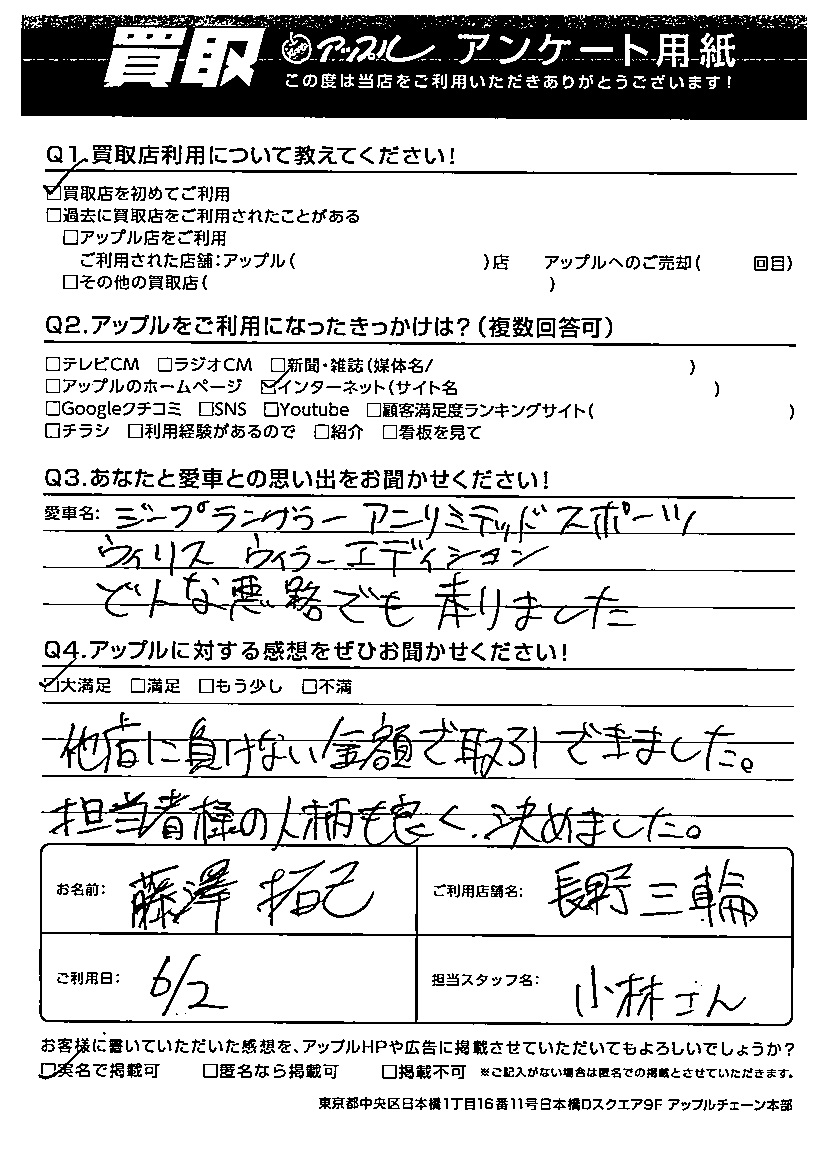 買取 アップル アンケート用紙
この度は当店をご利用いただきありがとうございます!
Q1.買取店利用について教えてください!
☑買取店を初めてご利用
□過去に買取店をご利用されたことがある
□アップル店をご利用
ご利用された店舗:アップル( )店 アップルへのご売却( 回目)
□その他の買取店( )
Q2.アップルをご利用になったきっかけは?(複数回答可)
□テレビCM □ラジオCM □新聞・雑誌(媒体名/ )
□アップルのホームページ ☑インターネット(サイト名 )
□Googleクチコミ □SNS □Youtube □顧客満足度ランキングサイト( )
□チラシ □利用経験があるので □紹介 □看板を見て
Q3.あなたと愛車との思い出をお聞かせください!
愛車名: ジープラングラー アンリミテッドスポーツ
ウィリス ウィラーエディション
どんな悪路でも走りました
Q4.アップルに対する感想をぜひお聞かせください!
☑大満足 □満足 □もう少し □不満
他店に負けない金額で取引できました。
担当者様の人柄も良く、決めました。
お名前: 藤澤 拓己 ご利用店舗名: 長野三輪
ご利用日: 6/2 担当スタッフ名: 小林さん
お客様に書いていただいた感想を、アップルHPや広告に掲載させていただいてもよろしいでしょうか?
☑実名で掲載可 □匿名なら掲載可 □掲載不可 ※ご記入がない場合は匿名での掲載とさせていただきます。
東京都中央区日本橋1丁目16番11号日本橋Dスクエア9F アップルチェーン本部